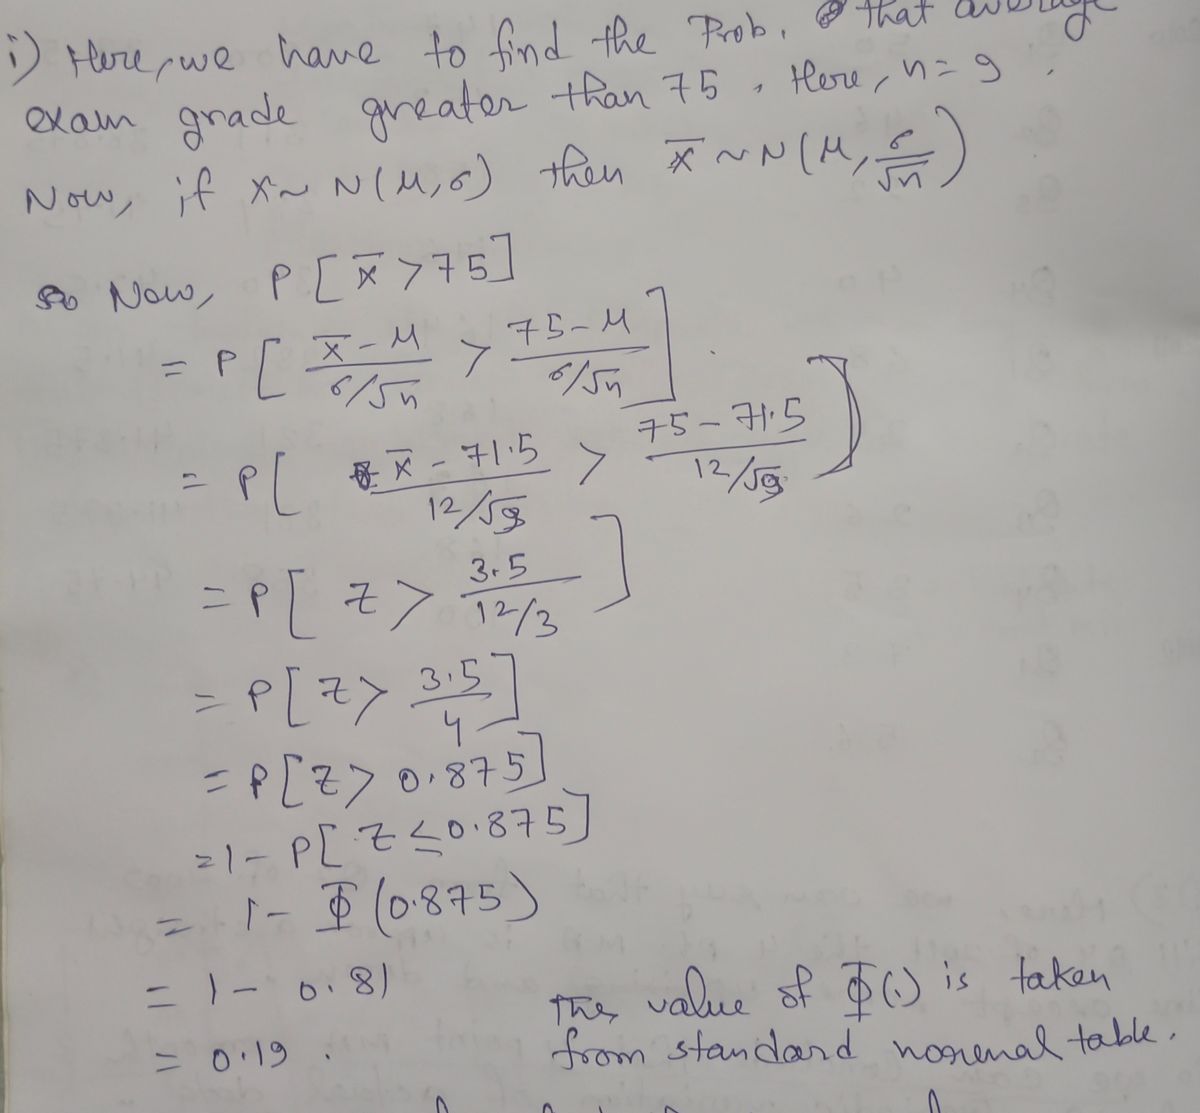 i) Here, we have to find the Prob. that average
exam grade greater than 75. Here, n = 9.
Now, if x ~ N(μ,σ) then x̄ ~ N(μ, σ/√n)
so Now, P[x̄ > 75]
= P[(x̄ - μ)/(σ/√n) > (75 - μ)/(σ/√n)]
= P[(x̄ - 71.5)/(12/√9) > (75 - 71.5)/(12/√9)]
= P[Z > 3.5/(12/3)]
= P[Z > 3.5/4]
= P[Z > 0.875]
= 1 - P[Z ≤ 0.875]
= 1 - Φ(0.875)
= 1 - 0.81
= 0.19.
The value of Φ(.) is taken
from standard normal table.